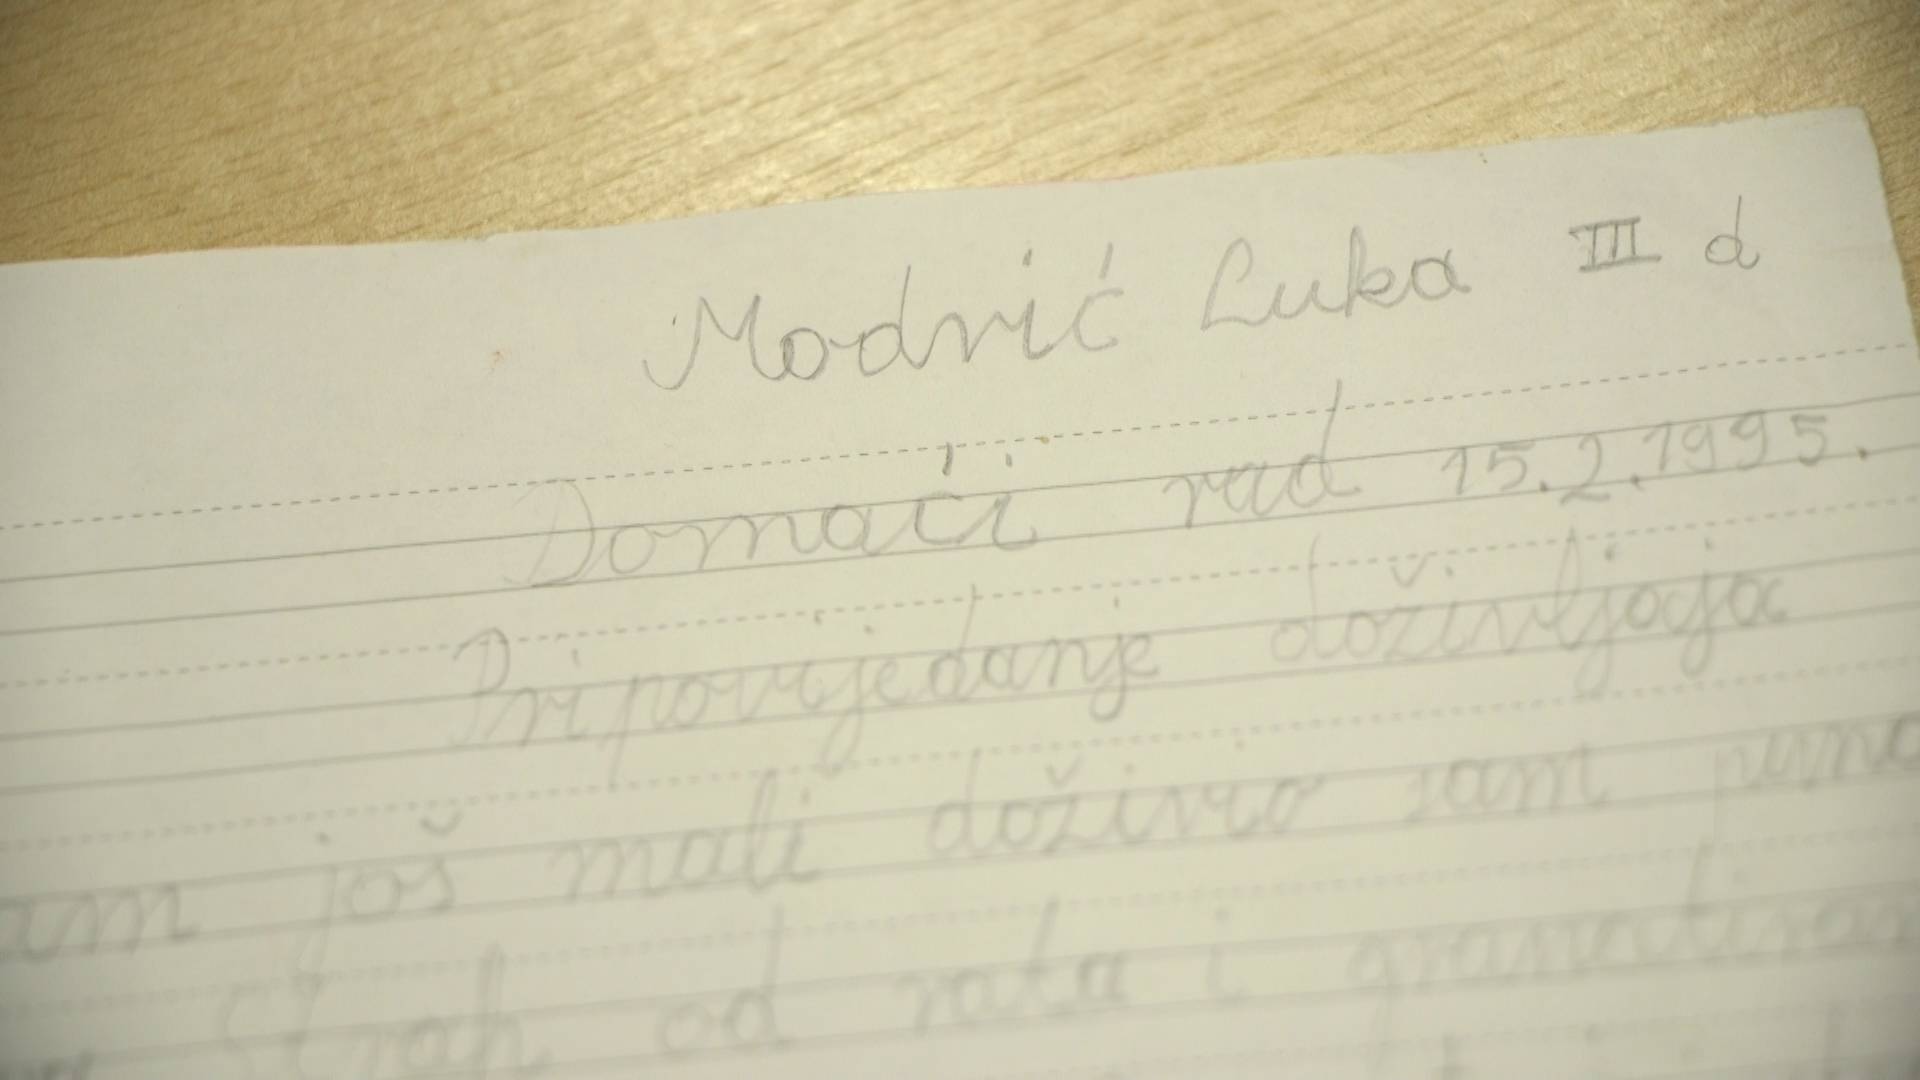 Modrić Luka III d
Domaći rad 15.2.1995.
Pripovijedanje doživljaja
sam još mali doživio sam puno
Strah od rata i granatiran